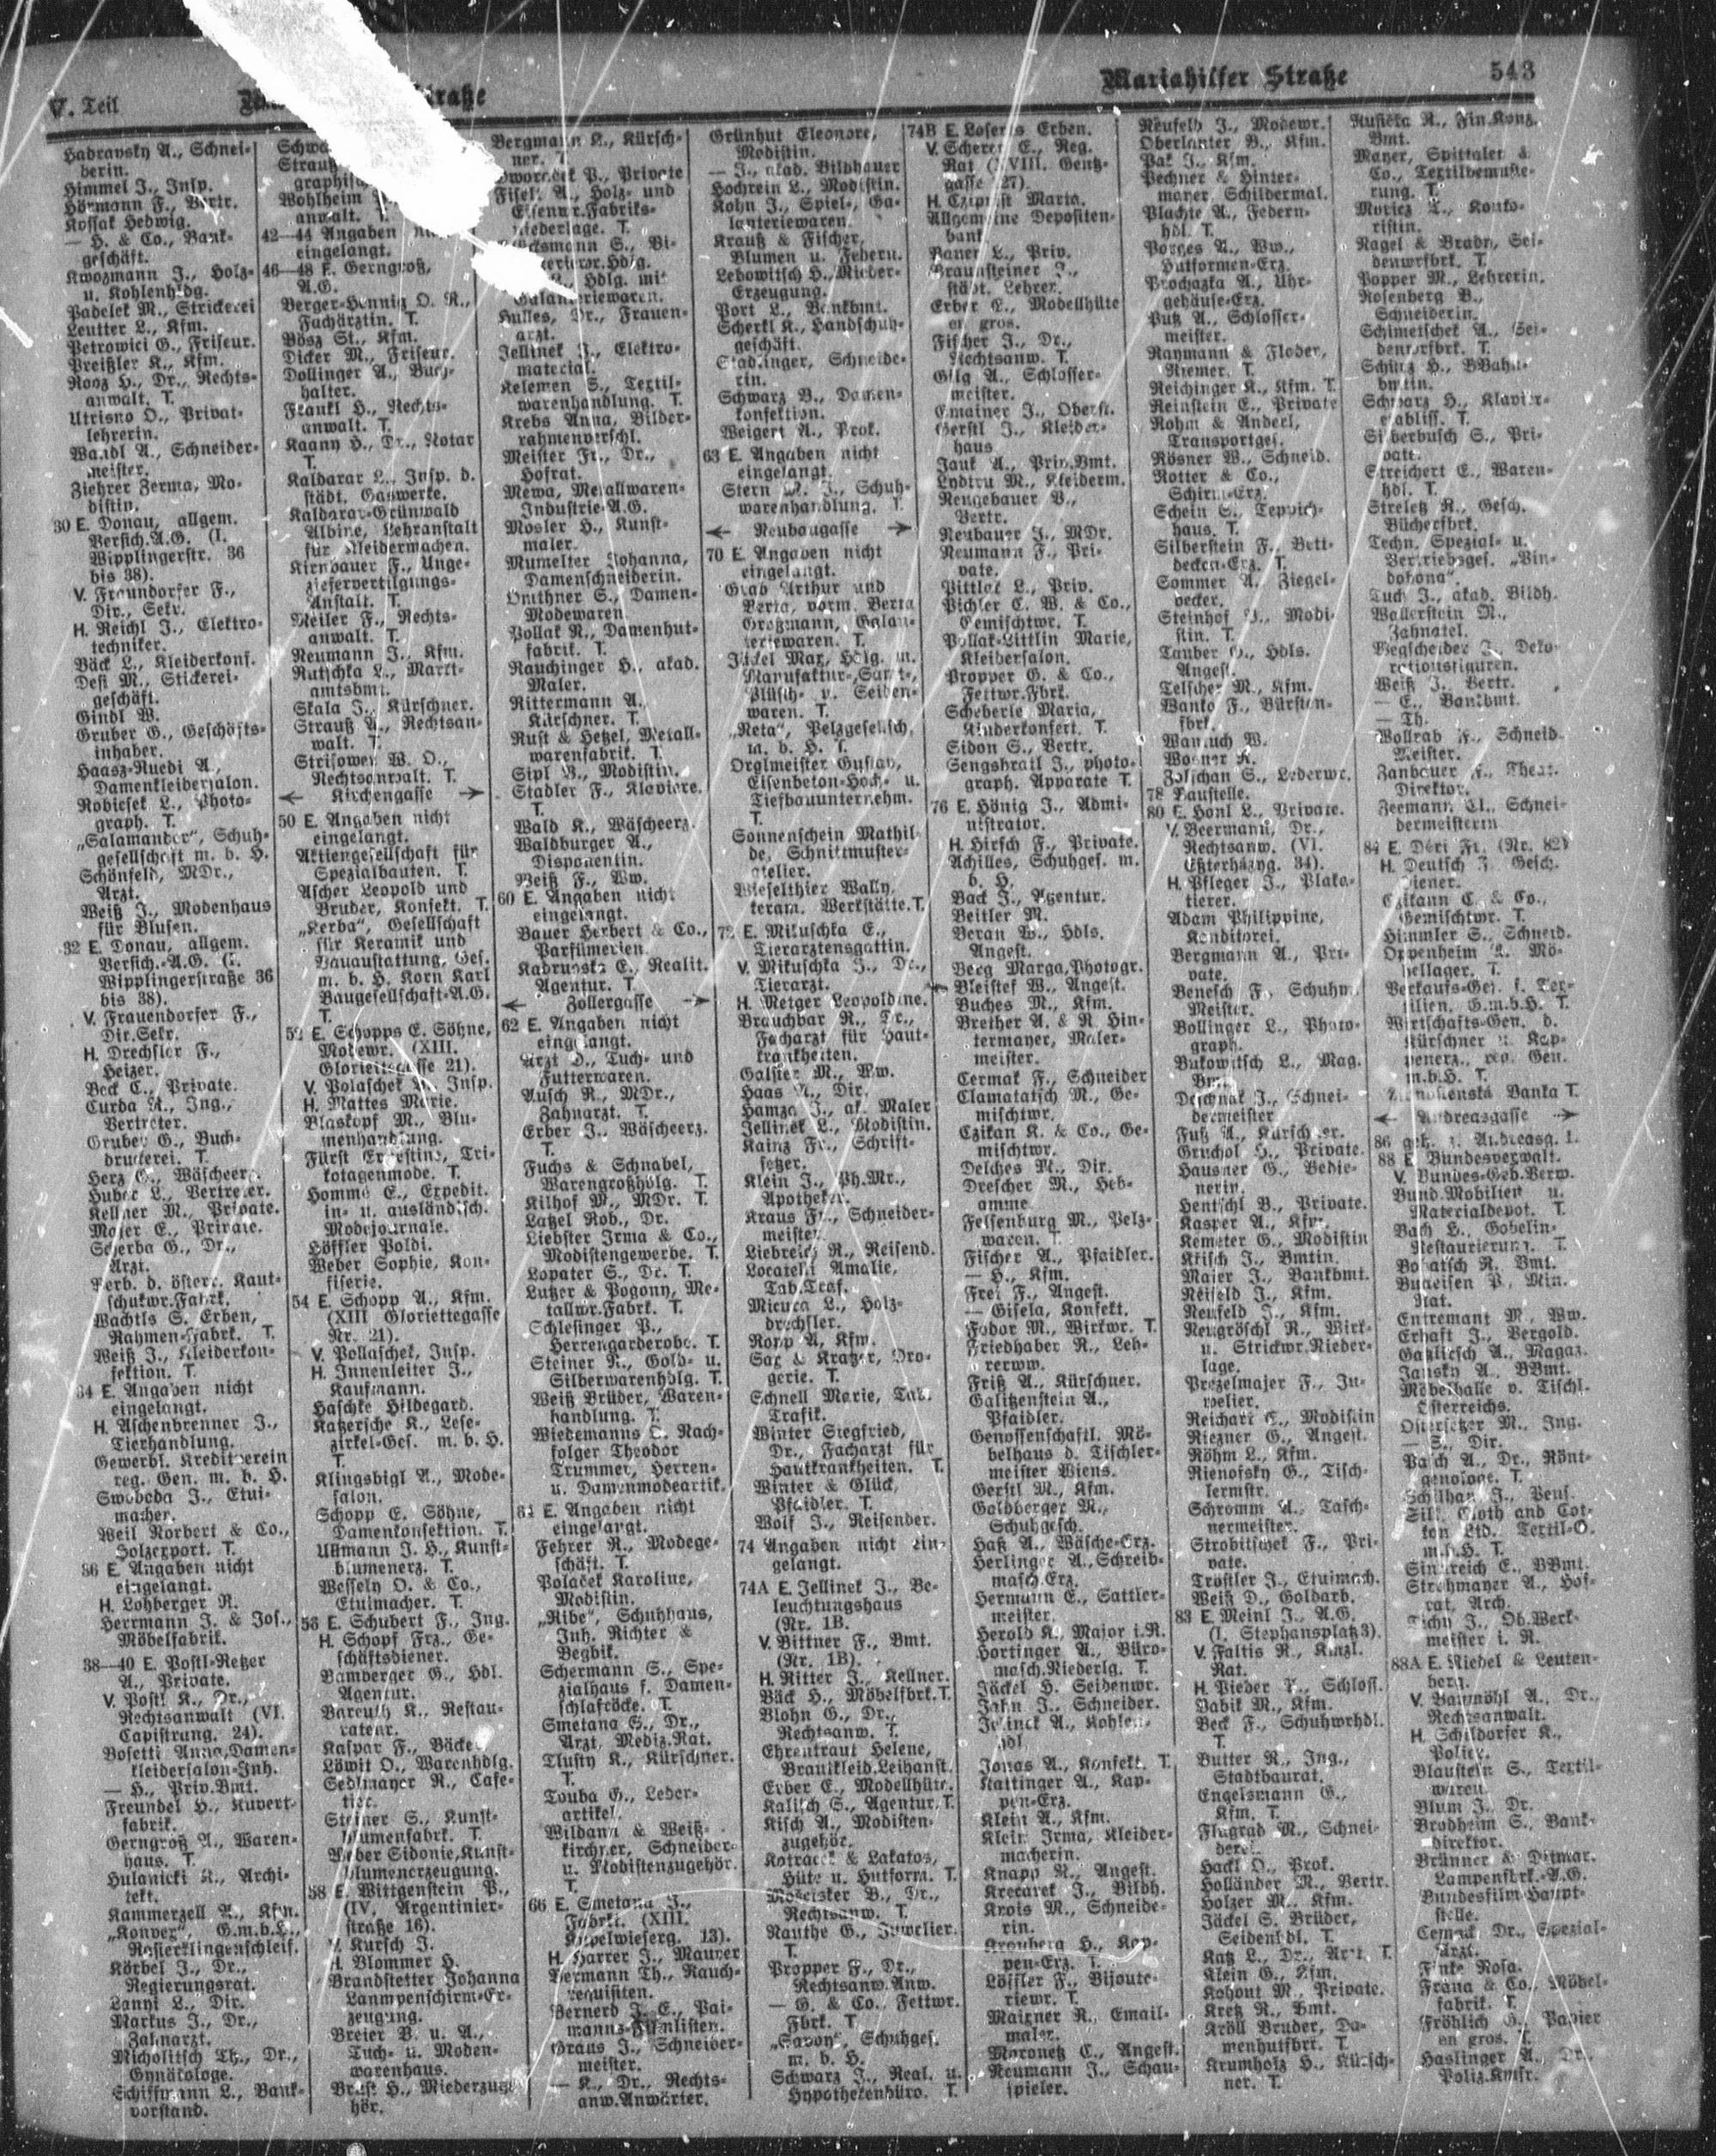 V. Teil
Mariahilfer Straße
543
Hadravsky A., Schnei-
derin.
Himmel J., Insp.
Hörmann F., Vertr.
Kossak Hedwig.
— H. & Co., Bank-
geschäft.
Kwozmann J., Holz-
u. Kohlenhdg.
Padelek M., Strickerei
Leutter L., Kfm.
Petrowici G., Friseur.
Preißler K., Kfm.
Rooz H., Dr., Rechts-
anwalt. T.
Utrisno O., Privat-
lehrerin.
Wandl A., Schneider-
meister.
Ziehrer Zerma, Mo-
distin.
30 E. Donau, allgem.
Versich.A.G. (I.
Wipplingerstr. 36
bis 38).
V. Fraundorfer F.,
Dir., Sekr.
H. Reichl J., Elektro-
techniker.
Bäck L., Kleiderkonf.
Desi M., Stickerei-
geschäft.
Gindl W.
Gruber G., Geschäfts-
inhaber.
Haasz-Ruedi A.,
Damenkleidersalon.
Robicsek L., Photo-
graph. T.
„Salamander“, Schuh-
gesellschaft m. b. H.
Schönfeld, MDr.,
Arzt.
Weiß J., Modenhaus
für Blusen.
32 E. Donau, allgem.
Versich.-A.G. (I.
Wipplingerstraße 36
bis 38).
V. Frauendorfer F.,
Dir.Sekr.
H. Drechsler F.,
Heizer.
Beck C., Private.
Curda A., Ing.,
Vertreter.
Gruber G., Buch-
druckerei. T.
Herz G., Wäscheerz.
Huber L., Vertreter.
Kellner M., Private.
Mojer E., Private.
Scherba G., Dr.,
Arzt.
Verb. d. österr. Kaut-
schukwr.Fabrk.
Wachtls S. Erben,
Rahmen-Fabrk. T.
Weiß J., Kleiderkon-
fektion. T.
34 E. Angaben nicht
eingelangt.
H. Aschenbrenner J.,
Tierhandlung.
Gewerbl. Kreditverein
reg. Gen. m. b. H.
Swoboda J., Etui-
macher.
Weil Norbert & Co.,
Holzexport. T.
36 E. Angaben nicht
eingelangt.
H. Lohberger R.
Herrmann J. & Jos.,
Möbelfabrik.
38—40 E. Postl-Retzer
A., Private.
V. Postl K., Dr.,
Rechtsanwalt (VI.
Capistrang. 24).
Bosetti Anna,Damen-
kleidersalon-Inh.
— H., Priv.Bmt.
Freundel H., Kuvert-
fabrik.
Gerngroß A., Waren-
haus. T.
Hulanicki K., Archi-
tekt.
Kammerzell A., Kfm.
„Konver“, G.m.b.H.,
Rasierklingenschleif.
Körbel J., Dr.,
Regierungsrat.
Lanyi L., Dir.
Markus J., Dr.,
Zahnarzt.
Micholitsch Th., Dr.,
Gynäkologe.
Schiffmann L., Bank-
vorstand.
Strauß
Wohlheim
anwalt. T.
42—44 Angaben
eingelangt.
46—48 E. Gerngroß,
A.G.
Berger-Hennig O. R.,
Fachärztin. T.
Bösz St., Kfm.
Dicker M., Friseur.
Dollinger A., Buch-
halter.
Frankl H., Rechts-
anwalt. T.
Kaany H., Dr., Notar
T.
Kaldarar L., Insp. d.
städt. Gaswerke.
Kaldarar-Grünwald
Albine, Lehranstalt
für Kleidermachen.
Kirnbauer F., Unge-
ziefervertilgungs-
Anstalt. T.
Meiler F., Rechts-
anwalt. T.
Neumann J., Kfm.
Rutschka L., Markt-
amtsbmt.
Skala J., Kürschner.
Strauß A., Rechtsan-
walt. T.
Strisower W. O.,
Rechtsanwalt. T.
Kirchengasse
50 E. Angaben nicht
eingelangt.
Aktiengesellschaft für
Spezialbauten. T.
Ascher Leopold und
Bruder, Konfekt. T.
„Kerba“, Gesellschaft
für Keramik und
Bauaustattung, Ges.
m. b. H. Korn Karl
Baugesellschaft-A.G.
T.
52 E. Schopps E. Söhne,
Modewr. (XIII.
Gloriettegasse 21).
V. Polaschek A., Insp.
H. Mattes Marie.
Blaskopf M., Blu-
menhandlung.
Fürst Ernestine, Tri-
kotagenmode. T.
Homme E., Expedit.
in- u. ausländisch.
Modejournale.
Löffler Poldi.
Weber Sophie, Kon-
fiserie.
54 E. Schopp A., Kfm.
(XIII Gloriettegasse
Nr. 21).
V. Pollaschek, Insp.
H. Innenleiter J.,
Kaufmann.
Haschke Hildegard.
Katzersche K., Lese-
zirkel-Ges. m. b. H.
T.
Klingsbigl A., Mode-
salon.
Schopp E. Söhne,
Damenkonfektion. T.
Ullmann J. H., Kunst-
blumenerz. T.
Wessely O. & Co.,
Etuimacher. T.
56 E. Schubert F., Ing.
H. Schopf Frz., Ge-
schäftsdiener.
Bamberger G., Hdl.
Agentur.
Bareuth K., Restau-
rateur.
Kaspar F., Bäcker
Löwit O., Warenhdlg.
Sedlmayer R., Cafe-
tier.
Steiner S., Kunst-
blumenfabrk. T.
Weber Sidonie,Kunst-
blumenerzeugung.
58 E. Wittgenstein P.,
(IV, Argentinier-
straße 16).
V. Kursch J.
H. Blommer H.
Brandstetter Johanna
Lanmpenschirm-Er-
zeugung.
Breier B. u. A.,
Tuch- u. Moden-
warenhaus.
Brust H., Miederzuge-
hör.
Bergmann K., Kürsch-
ner. T.
Dworacek P., Private
Fisel A., Holz- und
Eisenwr.Fabriks-
niederlage. T.
Hdlg. mit
Galanteriewaren.
Hulles, Dr., Frauen-
arzt.
Jellinek J., Elektro-
material.
Kelemen S., Textil-
warenhandlung. T.
Krebs Anna, Bilder-
rahmenverschl.
Meister Fr., Dr.,
Hofrat.
Mewa, Metallwaren-
Industrie-A.G.
Mosler H., Kunst-
maler.
Mumelter Johanna,
Damenschneiderin.
Omthner S., Damen-
Modewaren
Pollak R., Damenhut-
fabrik. T.
Rauchinger H., akad.
Maler.
Rittermann A.,
Kürschner. T.
Rust & Hetzel, Metall-
warenfabrik. T.
Sipl B., Modistin.
Stadler F., Klaviere.
T.
Wald K., Wäscheerz.
Waldburger A.,
Disponentin.
Weiß F., Ww.
60 E. Angaben nicht
eingelangt.
Bauer Herbert & Co.,
Parfümerien.
Kadrnoska E., Realit.
Agentur. T.
Zollergasse
62 E. Angaben nicht
eingelangt.
Arzt O., Tuch- und
Futterwaren.
Ausch R., MDr.,
Zahnarzt. T.
Erber J., Wäscheerz.
T.
Fuchs & Schnabel,
Warengroßhdlg. T.
Kilhof M., MDr. T.
Latzel Rob., Dr.
Liebster Irma & Co.,
Modistengewerbe. T.
Lopater S., Dr. T.
Lutzer & Pogony, Me-
tallwr.Fabrk. T.
Schlesinger P.,
Herrengarderobe. T.
Steiner R., Gold- u.
Silberwarenhdlg. T.
Weiß Brüder, Waren-
handlung. T.
Wiedemanns C. Nach-
folger Theodor
Trummer, Herren-
u. Damenmodeartik.
64 E. Angaben nicht
eingelangt.
Fehrer R., Modege-
schäft. T.
Polacek Karoline,
Modistin.
„Ribe“, Schuhhaus,
Inh. Richter &
Begbik.
Schermann S., Spe-
zialhaus f. Damen-
schlafröcke. T.
Smetana S., Dr.,
Arzt, Mediz.Rat.
Tlusty K., Kürschner.
T.
Touba G., Leder-
artikel.
Wildann & Weiß-
kirchner, Schneider-
u. Modistenzugehör.
T.
66 E. Smetana J.,
Fabrk. (XIII.
Kupelwieserg. 13).
H. Harrer J., Maurer
Bermann Th., Rauch-
requisiten.
Bernerd J. E., Pai-
manns-Filmlisten.
Braus J., Schneider-
meister.
— K., Dr., Rechts-
anw.Anwärter.
Grünhut Eleonore,
Modistin.
— J., akad. Bildhauer
Hochrein L., Modistin.
Kohn J., Spiel-, Ga-
lanteriewaren.
Krauß & Fischer,
Blumen u. Federn.
Lebowitsch H., Mieder-
Erzeugung.
Port L., Bankbmt.
Scherkl K., Handschuh-
geschäft.
Stadlinger, Schneide-
rin.
Schwarz B., Damen-
konfektion.
Weigert A., Prok.
68 E. Angaben nicht
eingelangt.
Stern M. J., Schuh-
warenhandlung. T.
Neubaugasse
70 E. Angaben nicht
eingelangt.
Grab Arthur und
Berta, vorm. Berta
Großmann, Galan-
teriewaren. T.
Jäckel Max, Hdlg. m.
Manufaktur-,Samt-,
Plüsch- u. Seiden-
waren. T.
„Neta“, Pelzgesellsch.
m. b. H. T.
Orglmeister Gustav,
Eisenbeton-Hoch- u.
Tiefbauunternehm.
T.
Sonnenschein Mathil-
de, Schnittmuster-
atelier.
Wieselthier Wally,
keram. Werkstätte.T.
72 E. Mikuschka E.,
Tierarztensgattin.
V. Mikuschka J., Dr.,
Tierarzt.
H. Metzger Leopoldine.
Brauchbar R., Dr.,
Facharzt für Haut-
krankheiten.
Galster M., Ww.
Haas M., Dir.
Hamza J., ak. Maler
Jellinek L., Modistin.
Kainz Fr., Schrift-
setzer.
Klein J., Ph.Mr.,
Apotheker.
Kraus Fr., Schneider-
meister.
Liebreich R., Reisend.
Locatelli Amalie,
Tab.Traf.
Mieuca L., Holz-
drechsler.
Ropp A, Kfm.
Sax & Kratzer, Dro-
gerie. T.
Schnell Marie, Tab.
Trafik.
Winter Siegfried,
Dr., Facharzt für
Hautkrankheiten. T.
Winter & Glück,
Pfaidler. T.
Wolf J., Reisender.
74 Angaben nicht ein-
gelangt.
74A E. Jellinek J., Be-
leuchtungshaus
(Nr. 1B.
V. Bittner F., Bmt.
(Nr. 1B).
H. Ritter J., Kellner.
Bäck H., Möbelfbrk.T.
Blohn G., Dr.,
Rechtsanw. T.
Ehrentraut Helene,
Brautkleid.Leihanst.
Erber E., Modellhüte.
Kalisch S., Agentur.T.
Kisch A., Modisten-
zugehör.
Kotracek & Lakatos,
Hüte u. Hutform. T.
Moreisker B., Dr.,
Rechtsanw. T.
Nauthe G., Juwelier.
T.
Propper F., Dr.,
Rechtsanw.Anw.
— G. & Co., Fettwr.
Fbrk. T.
„Savon“, Schuhges.
m. b. H.
Schwarz J., Real. u.
Hypothekenbüro. T.
74B E. Loserts Erben.
V. Scherer E., Reg.
Rat (XVIII. Gentz-
gasse 27).
H. Cziprist Maria.
Allgemeine Depositen-
bank
Bauer L., Priv.
Braunsteiner J.,
städt. Lehrer.
Erber E., Modellhüte
en gros.
Fischer J., Dr.,
Rechtsanw. T.
Gilg A., Schlosser-
meister.
Gmainer J., Oberst.
Gerstl J., Kleider-
haus
Jauk A., Priv.Bmt.
Lydtru M., Kleiderm.
Rengebauer B.,
Vertr.
Neubauer J., MDr.
Neumann F., Pri-
vate.
Pittlat L., Priv.
Pichler C. W. & Co.,
Gemischtwr. T.
Pollak-Littlin Marie,
Kleidersalon.
Propper G. & Co.,
Fettwr.Fbrk.
Scheberle Maria,
Kinderkonfert. T.
Sidon S., Vertr.
Sengsbratl J., photo-
graph. Apparate T.
76 E. Hönig J., Admi-
nistrator.
H. Hirsch F., Private.
Achilles, Schuhges. m.
b. H.
Back J., Agentur.
Beitler M.
Beran W., Hdls.
Angest.
Berg Marga,Photogr.
Bleistef W., Angest.
Buches M., Kfm.
Brether A. & R. Hin-
termayer, Maler-
meister.
Cermak F., Schneider
Clamatatsch M., Ge-
mischtwr.
Czikan K. & Co., Ge-
mischtwr.
Delches M., Dir.
Drescher M., Heb-
amme.
Felsenburg M., Pelz-
waren. T.
Fischer A., Pfaidler.
— H., Kfm.
Frei F., Angest.
— Gisela, Konfekt.
Fodor M., Wirkwr. T.
Friedhaber R., Leh-
rerww.
Friß A., Kürschner.
Galitzenstein A.,
Pfaidler.
Genossenschaftl. Mö-
belhaus d. Tischler-
meister Wiens.
Gerstl M., Kfm.
Goldberger M.,
Schuhgesch.
Haß A., Wäsche-Erz.
Herlinger A.,Schreib-
masch.Erz.
Hermann E., Sattler-
meister.
Herold K., Major i.R.
Hortinger A., Büro-
masch.Niederlg. T.
Jäckel H. Seidenwr.
Jahn J., Schneider.
Jelinek A., Kohlen-
hdl
Jonas A., Konfekt. T.
Kattinger A., Kap-
pen-Erz.
Klein A., Kfm.
Klein Irma, Kleider-
macherin.
Knapp R., Angest.
Krecarek J., Bildh.
Krois M., Schneide-
rin.
Kronberg H., Kap-
pen-Erz. T.
Löffler F., Bijoute-
riewr. T.
Maixner R., Email-
maler.
Moronetz C., Angest.
Neumann J., Schau-
spieler.
Neufeld J., Modewr.
Oberlanter B., Kfm.
Pak J., Kfm.
Pechner & Hinter-
mayer, Schildermal.
Plachte A., Federn-
hdl. T.
Porges A., Ww.,
Hutformen-Erz.
Prochazka A., Uhr-
gehäuse-Erz.
Putz A., Schlosser-
meister.
Raymann & Floder,
Riemer. T.
Reichinger K., Kfm. T.
Reinstein E., Private
Rohm & Andeel,
Transportges.
Rösner W., Schneid.
Rotter & Co.,
Schirm-Erz.
Schein S., Teppich-
haus. T.
Silberstein F., Bett-
decken-Erz. T.
Sommer A. Ziegel-
decker.
Steinhof J., Modi-
stin. T.
Tauber O., Hdls.
Angest.
Telscher M., Kfm.
Wanko F., Bürsten-
fbrk.
Wanuch W.
Wosner K.
Zolschan S., Lederwr.
78 Baustelle.
80 E. Honl L., Private.
V. Beermann, Dr.,
Rechtsanw. (VI.
Eßterházyg. 34).
H. Pfleger J., Plaka-
tierer.
Adam Philippine,
Konditorei.
Bergmann A., Pri-
vate.
Benesch F., Schuhm.
Meister.
Bollinger L., Photo-
graph.
Bukowitsch L., Mag.
Bmt.
Deschnak J., Schnei-
dermeister.
Fuß A., Kürschner.
Gruchol H., Private.
Hausner G., Bedie-
nerin.
Hentschl B., Private.
Kasper A., Kfm.
Kemeter G., Modistin
Krisch J., Bmtin.
Maier J., Bankbmt.
Neifeld J., Kfm.
Neufeld J., Kfm.
Neugröschl R., Wirk-
u. Strickwr.Nieder-
lage.
Prezelmajer F., Ju-
welier.
Reichart E., Modistin
Riezner G., Angest.
Röhm L., Kfm.
Rienofsky G., Tisch-
lermstr.
Schromm A., Tasch-
nermeister.
Strobitschek F., Pri-
vate.
Tröstler J., Etuimach.
Weiß D., Goldarb.
83 E. Meinl J., A.G.
(I. Stephansplatz3).
V. Faltis R., Kanzl.
Rat.
H. Pieber T., Schloss.
Babik M., Kfm.
Beck F., Schuhwrhdl.
T.
Butter R., Ing.,
Stadtbaurat.
Engelsmann G.,
Kfm. T.
Flugrad M., Schnei-
derei.
Hackl O., Prok.
Holländer M., Vertr.
Holzer M., Kfm.
Jäckel S. Brüder,
Seidenhdl. T.
Katz L., Dr., Arzt T.
Klein G., Kfm.
Kohout M., Private.
Kretz R., Bmt.
Kröll Bruder, Da-
menhutfbrk. T.
Krumholz H., Kürsch-
ner. T.
Rusicka R., Fin.Konz.
Bmt.
Mayer, Spittaler &
Co., Textilbemuste-
rung. T.
Moricz T., Konto-
ristin.
Nagel & Brady, Sei-
denwrfbrk. T.
Popper M., Lehrerin.
Rosenberg B.,
Schneiderin.
Schimetschek A., Sei-
denwrfbrk. T.
Schütz H., BBahn-
bmtin.
Schwarz H., Klavier-
etabliss. T.
Silberbusch S., Pri-
vate.
Streichert E., Waren-
hdl. T.
Streletz R., Gesch.
Bücherfbrk.
Techn. Spezial- u.
Vertriebsges. „Vin-
dobona“.
Tuch J., akad. Bildh.
Wallerstein M.,
Zahnatel.
Wegscheider J., Deko-
rationsfiguren.
Weiß J., Vertr.
— E., Bankbmt.
— Th.
Wollrab F., Schneid.
Meister.
Zanbauer F., Theat.
Direktor.
Zeemann Cl., Schnei-
dermeisterin
84 E. Déri Fr. (Nr. 82)
H. Deutsch F. Gesch.
Diener.
Czikann C. & Co.,
Gemischtwr. T.
Himmler S., Schneid.
Oppenheim A., Mö-
bellager. T.
Verkaufs-Ges. f. Tex-
tilien, G.m.b.H. T.
Wirtschafts-Gen. d.
Kürschner u. Kap-
penerz., reg. Gen.
m.b.H. T.
Zivnostenska Banka T.
Andreasgasse
86 geh. z. Andreasg. 1.
88 E. Bundesverwalt.
V. Bundes-Geb.Verw.
Bund.Mobilien u.
Materialdepot. T.
Bach H., Gobelin-
Restaurierung. T.
Bobatsch R., Bmt.
Budeisen P., Min.
Rat.
Entremant M., Ww.
Erhaft J., Vergold.
Gatzlirsch A., Magaz.
Jansky A., BBmt.
Möbelhalle v. Tischl.
Österreichs.
Ostersetzer M., Ing.
— S., Dir.
Pasch A., Dr., Rönt-
genologe. T.
Schillhan J., Pens.
Silk Cloth and Cot-
ton Ltd. Textil-G.
m.b.H. T.
Sinnreich E., BBmt.
Strohmayer A., Hof-
rat, Arch.
Tichy J., Ob.Werk-
meister i. R.
88A E. Riedel & Leuten-
berg.
V. Baumöhl A., Dr.,
Rechtsanwalt.
H. Schildorfer K.,
Polier.
Blaustein S., Textil-
waren.
Blum J., Dr.
Brodheim S., Bank-
direktor.
Brünner & Ditmar,
Lampenfbrk.-A.G.
Bundesfilm-Haupt-
stelle.
Cemach Dr., Spezial-
Arzt.
Finke Rosa.
Frana & Co., Möbel-
fabrik. T.
Fröhlich G., Papier
en gros. T.
Haslinger A., Dr.,
Poliz.Kmsr.